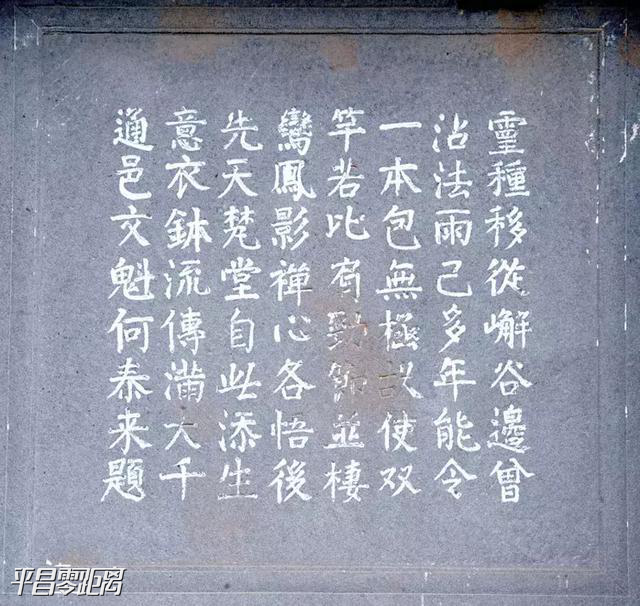 靈種移從嶰谷邊曾
沾法雨已多年能令
一本包無極故使双
竿若比肩勁節並棲
鸞鳳影禪心各悟後
先天梵堂自此添生
意衣鉢流傳滿大千
通邑文魁何泰来題
平昌零距离